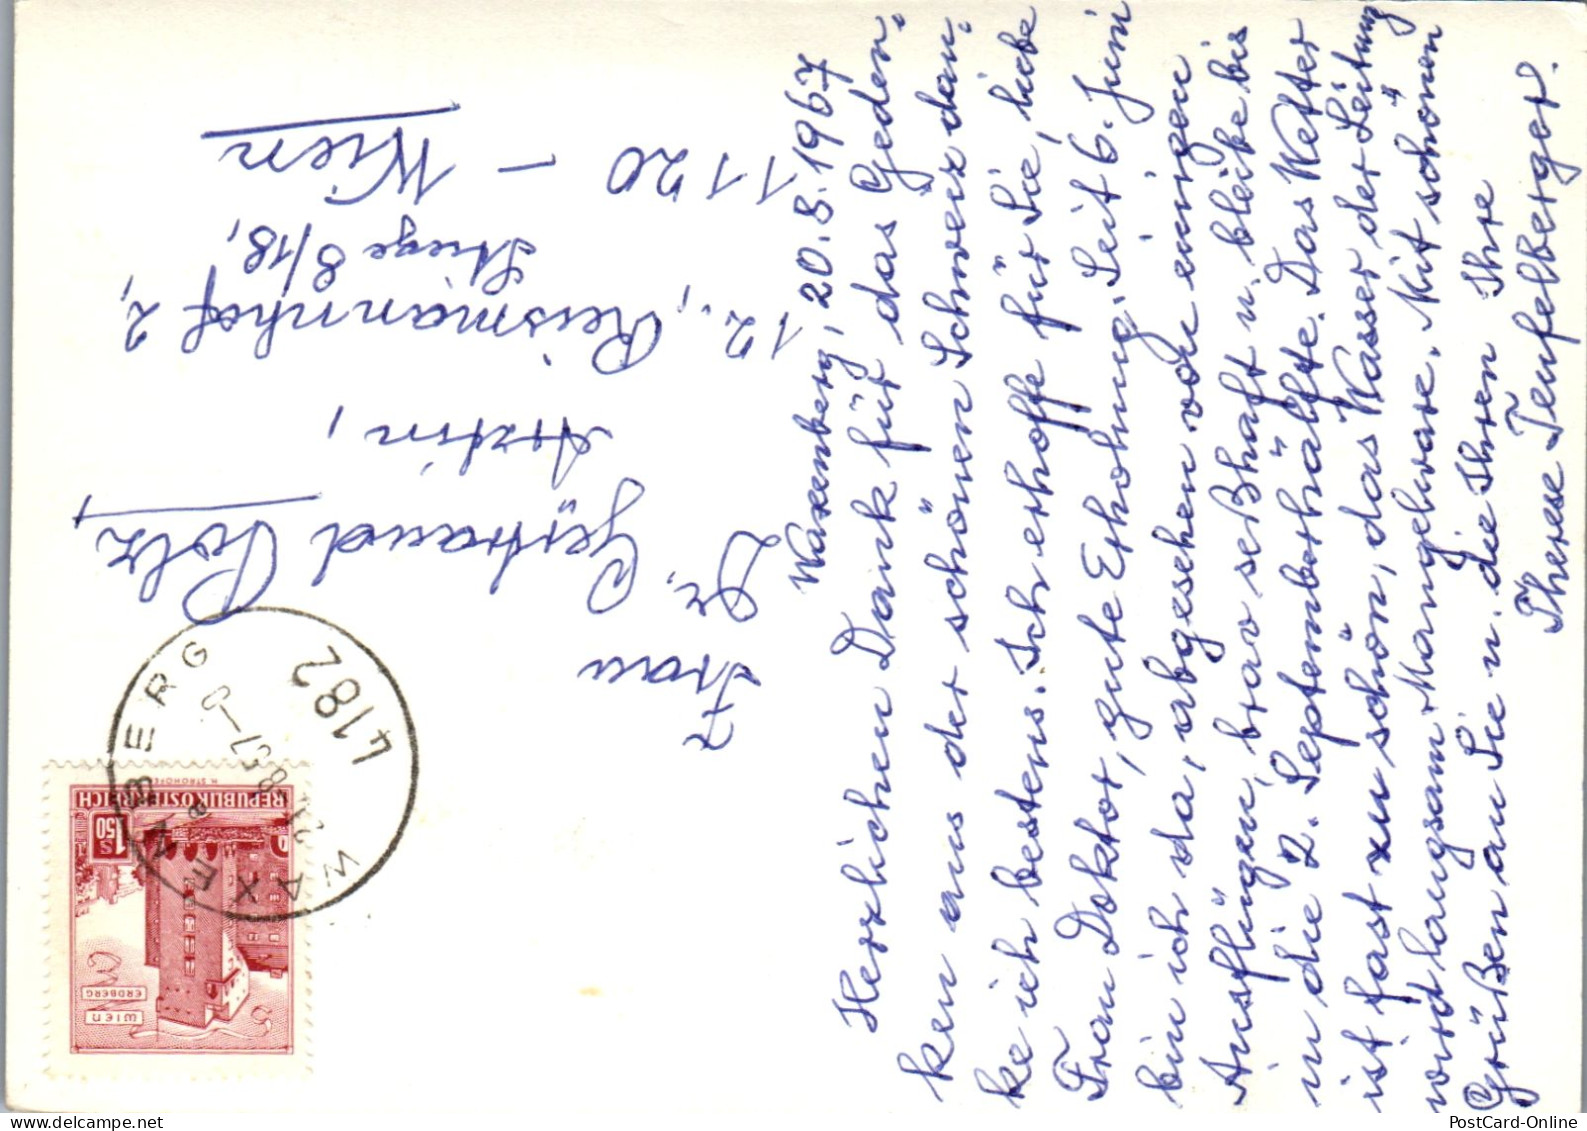 Waxenberg, 20.8.1967
Herzlichen Dank für das Geden-
ken aus der schönen Schweiz dan-
ke ich bestens. Ich erhoffe für Sie, liebe
Frau Doktor, gute Erholung. Seit 6. Juni
bin ich da, abgesehen von einigen
Ausflügen, brav seßhaft u. bleibe bis
in die 2. Septemberhälfte. Das Wetter
ist fast zu schön, das Wasser der Leitung
wird langsam "Mangelware". Mit schönen
Grüßen an Sie u. die Ihren Ihre
Therese Teufelberger.
Frau
Dr. Gertraud Polz,
Ärztin,
12., Reismannhof 2,
Stiege 8/18,
1120 - Wien
WAXENBERG
21.8.67
a
4182
REPUBLIK ÖSTERREICH
S 1.50
WIEN
ERDBERG
PostCard-Online
www.delcampe.net